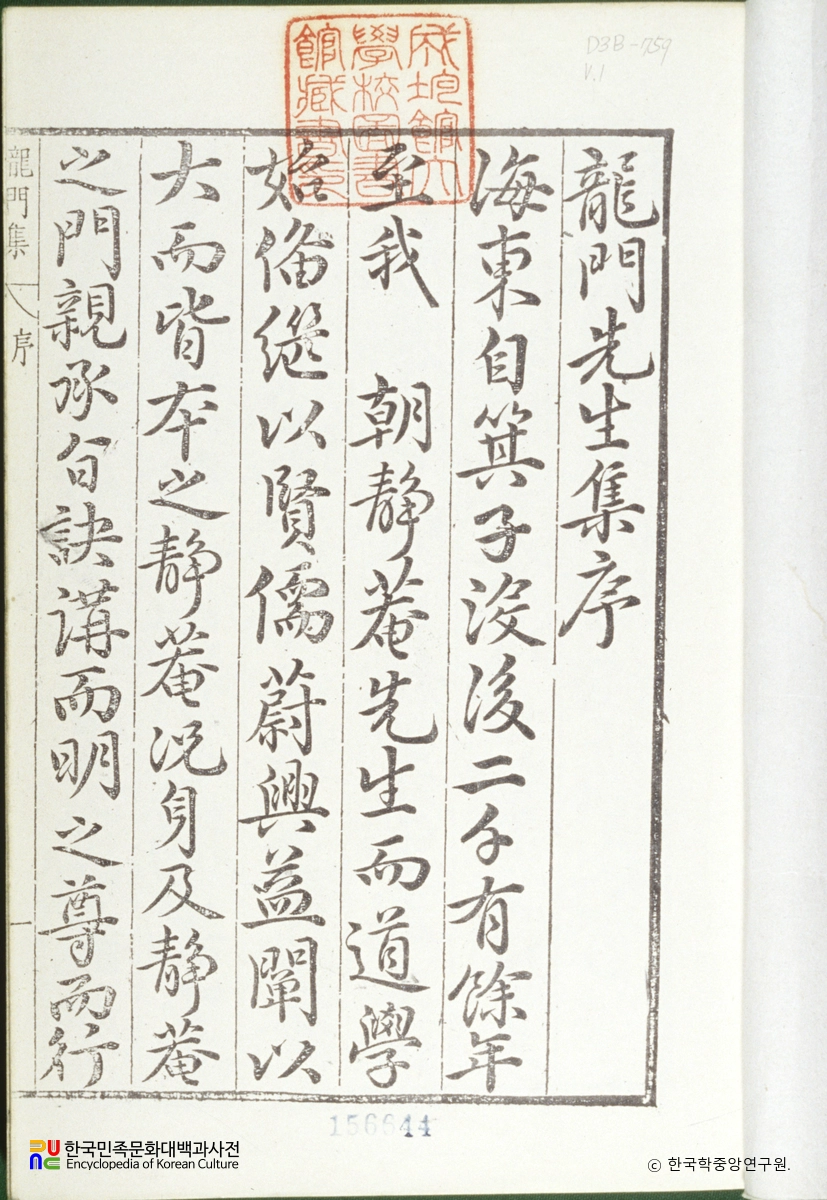 龍門先生集序
海東自箕子沒後二千有餘年
至我 朝靜菴先生而道學
始備繼以賢儒蔚興益闡以
大而皆本之靜菴況身及靜菴
之門親承旨訣講而明之尊而行
龍門集
序
一
成均館大
學校圖書
館藏書之
D3B-759
V.1
156644
한국민족문화대백과사전
Encyclopedia of Korean Culture
© 한국학중앙연구원.